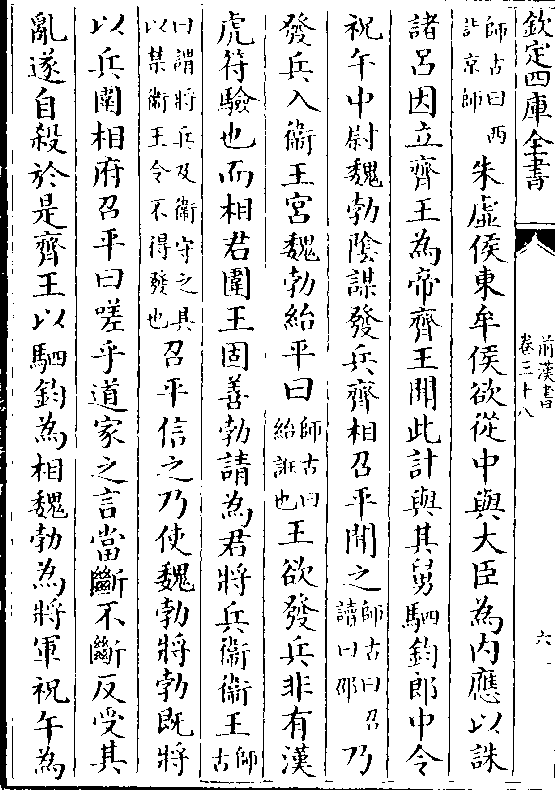 欽定四庫全書
前漢書
卷三十八
六
師古曰西
詣京師
朱虛侯東牟侯欲從中與大臣為内應以誅
諸呂因立齊王為帝齊王聞此計與其舅駟鈞郎中令
祝午中尉魏勃陰謀發兵齊相召平聞之
師古曰召
讀曰邵
乃
發兵入衞王宮魏勃紿平曰
師古曰
紿誑也
王欲發兵非有漢
虎符驗也而相君圍王固善勃請為君將兵衞衞王
師古
曰謂將兵及衞守之具
以禁衞王令不得發也
召平信之乃使魏勃將勃既將
以兵圍相府召平曰嗟乎道家之言當斷不斷反受其
亂遂自殺於是齊王以駟鈞為相魏勃為將軍祝午為